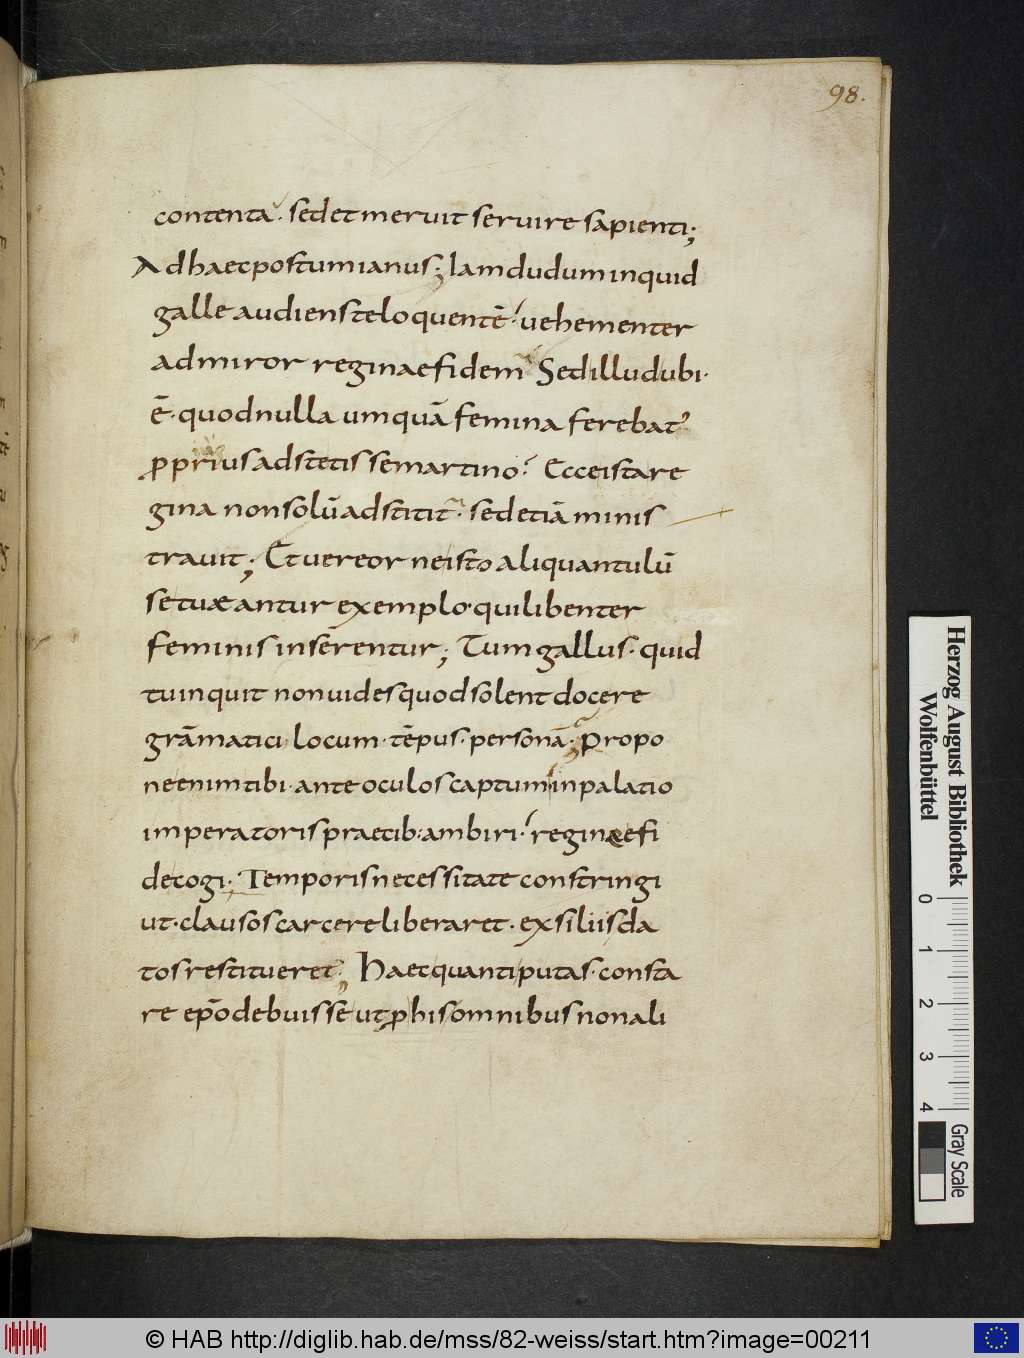 98.
contenta. sed et meruit seruire sapienti;
Ad haec postumianus; Iamdudum inquid
galle audiens te loquentē. uehementer
admiror reginae fidem Sed illud ubi.
ē. quod nulla umquā femina ferebat
ꝓprius adstetisse martino? Ecce ista re
gina non solū adstitit. sed etiā minis
trauit; Et uereor ne isto aliquantulū
se tuæantur exemplo. qui libenter
feminis inserentur; Tum gallus. quid
tu inquit non uides quod solent docere
grāmatici. locum. tēpus. personā; Propo
ne enim tibi. ante oculos captum in palatio
imperatoris praecib: ambiri. reginæ fi
de cogi. Temporis necessitate constringi
ut. clausos carcere liberaret. exsiliis da
tos restitueret; Haec quanti putas. consta
re ep̄o debuisse ut ꝓ his omnibus non ali
Herzog August Bibliothek
Wolfenbüttel
0 1 2 3 4
Gray Scale
© HAB http://diglib.hab.de/mss/82-weiss/start.htm?image=00211